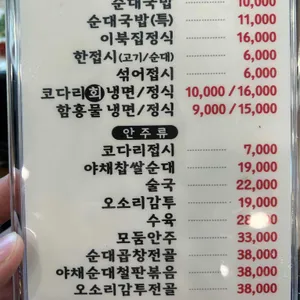 순대국밥 10,000
순대국밥(특) 11,000
이북집정식 16,000
한접시(고기/순대) 6,000
섞어접시 6,000
코다리회냉면/정식 10,000 / 16,000
함흥물냉면/정식 9,000 / 15,000
안주류
코다리접시 7,000
야채찹쌀순대 19,000
술국 22,000
오소리감투 19,000
수육
모둠안주 33,000
순대곱창전골 38,000
야채순대철판볶음 38,000
오소리감투전골 38,000